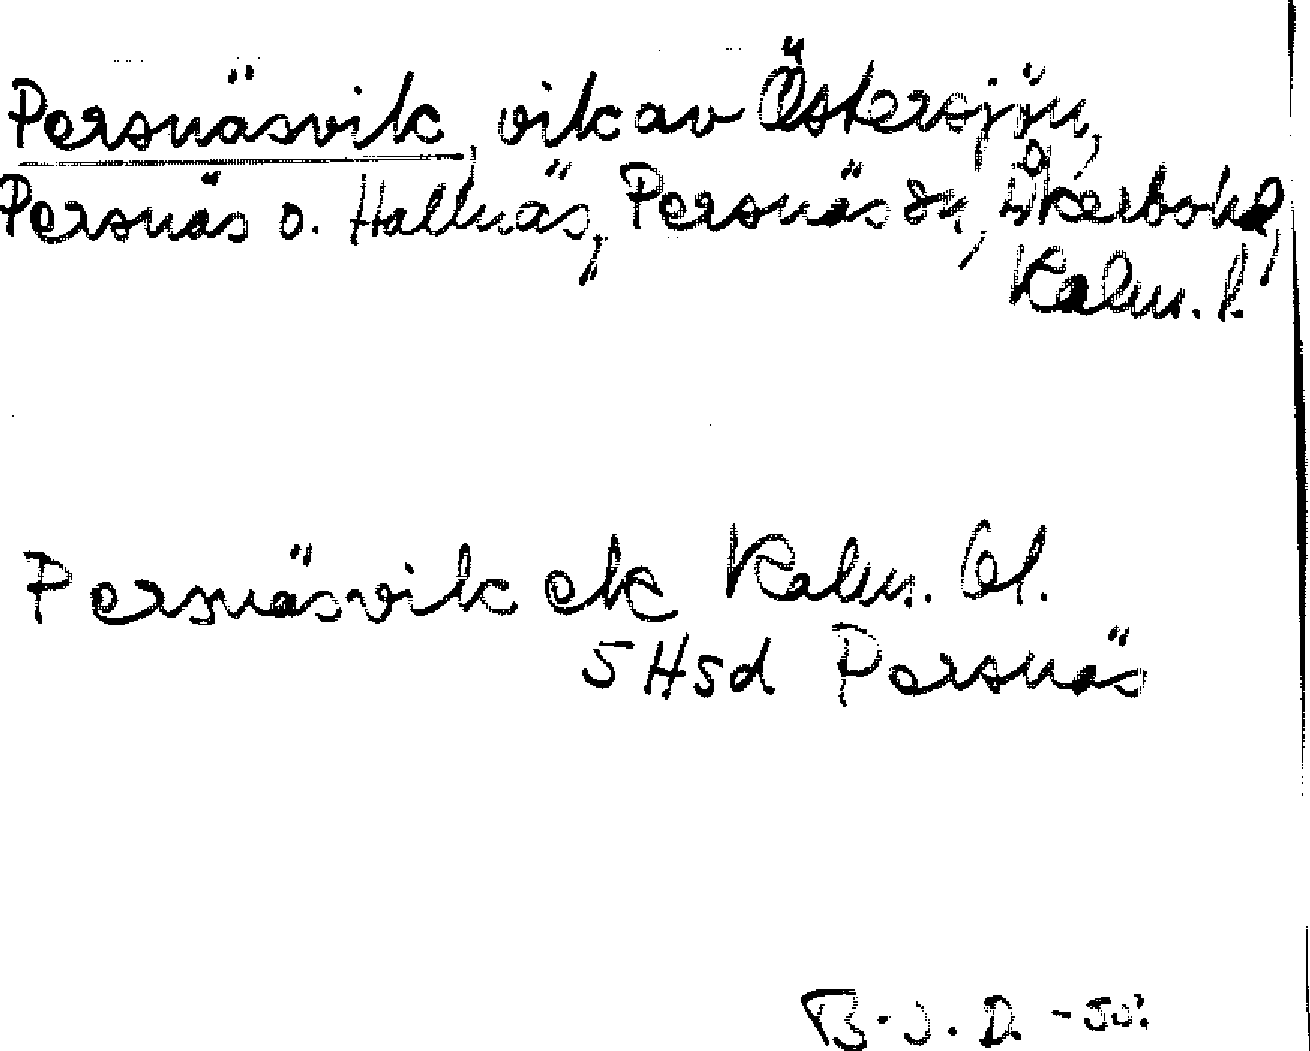 Persnäsvik, vik av Östersjön,
Persnäs o. Hallnäs, Persnäs sn, Åkerbo hd,
Kalm. l.
Persnäsvik ek Kalm. Öl.
5 Hsd Persnäs
B. J. D. -50.